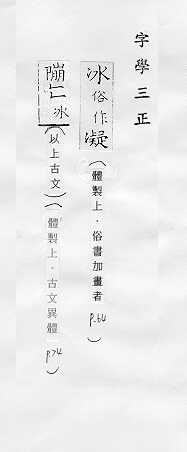 字學三正
冰俗作凝(體製上.俗書加畫者 p.64)
冰(以上古文)(體製上.古文異體 p.74)